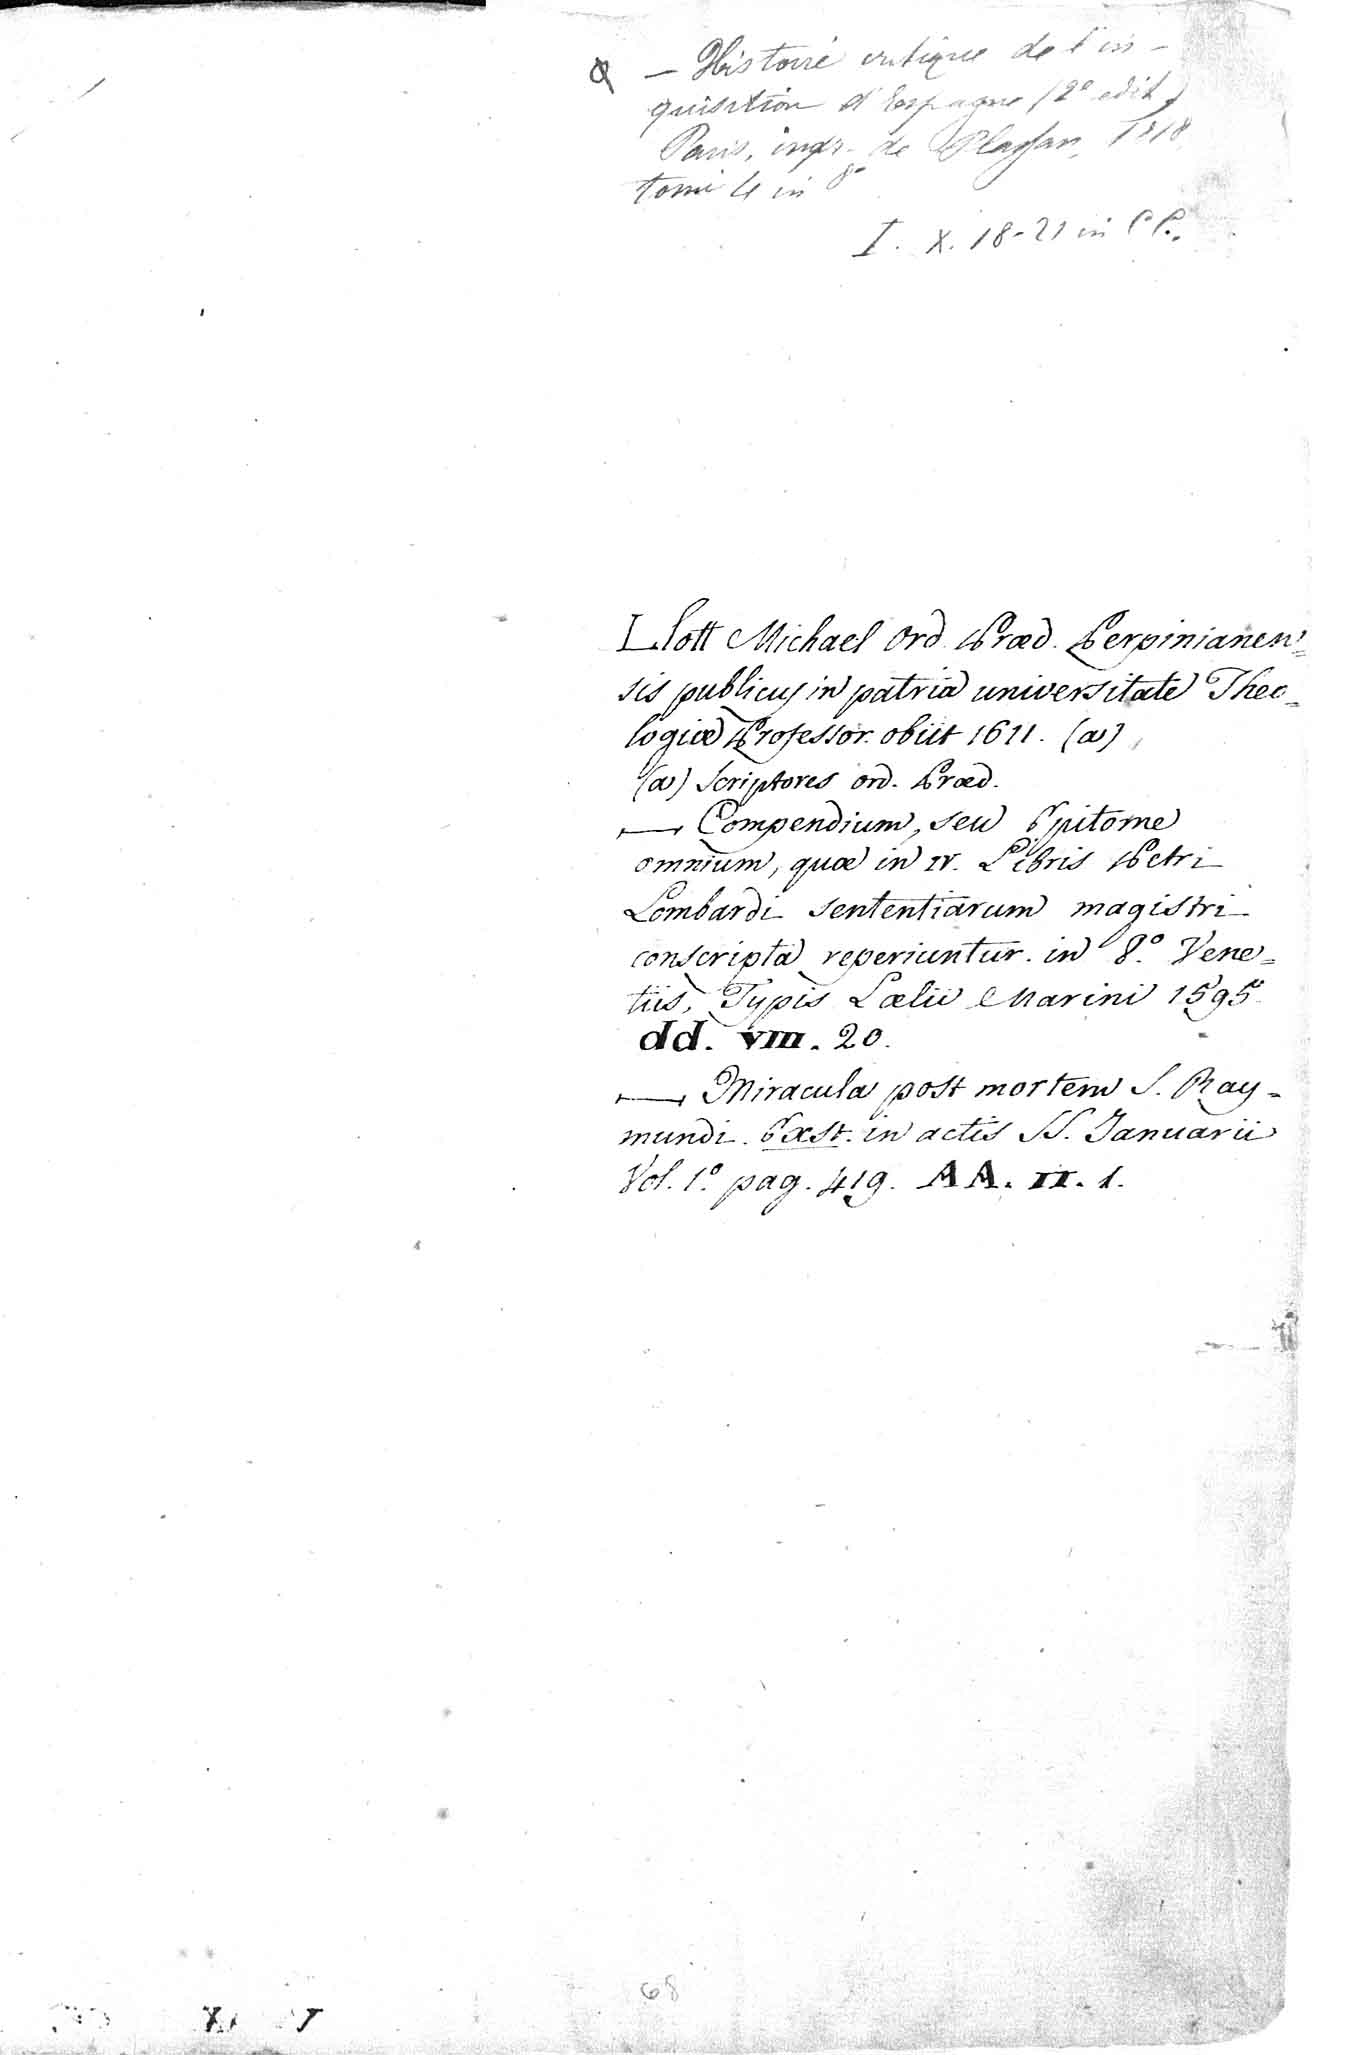 — Histoire critique de l'in-
quisition d'Espagne (2º edit.)
Paris, impr. de Plassan, 1818
tomi 4 in 8º
I. X. 18-21 in CC.
Llott Michael Ord. Præd. Perpinianen=
sis publicus in patria universitate Theo=
logiæ Professor. obiit 1611. (a)
(a) Scriptores ord. Præd.
— Compendium, seu Epitome
omnium, quæ in IV. Libris Petri
Lombardi sententiarum magistri
conscripta reperiuntur. in 8º. Vene=
tiis, Typis Lælii Marini 1595.
dd. VIII. 20.
— Miracula post mortem S. Ray=
mundi. Exst. in actis SS. Januarii
Vol. 1º. pag. 419. AA. II. 1.
68